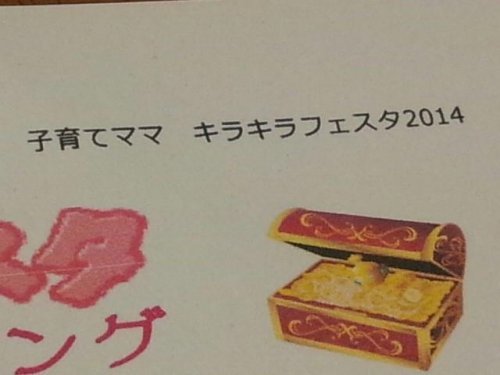 子育てママ　キラキラフェスタ2014
タ
ング